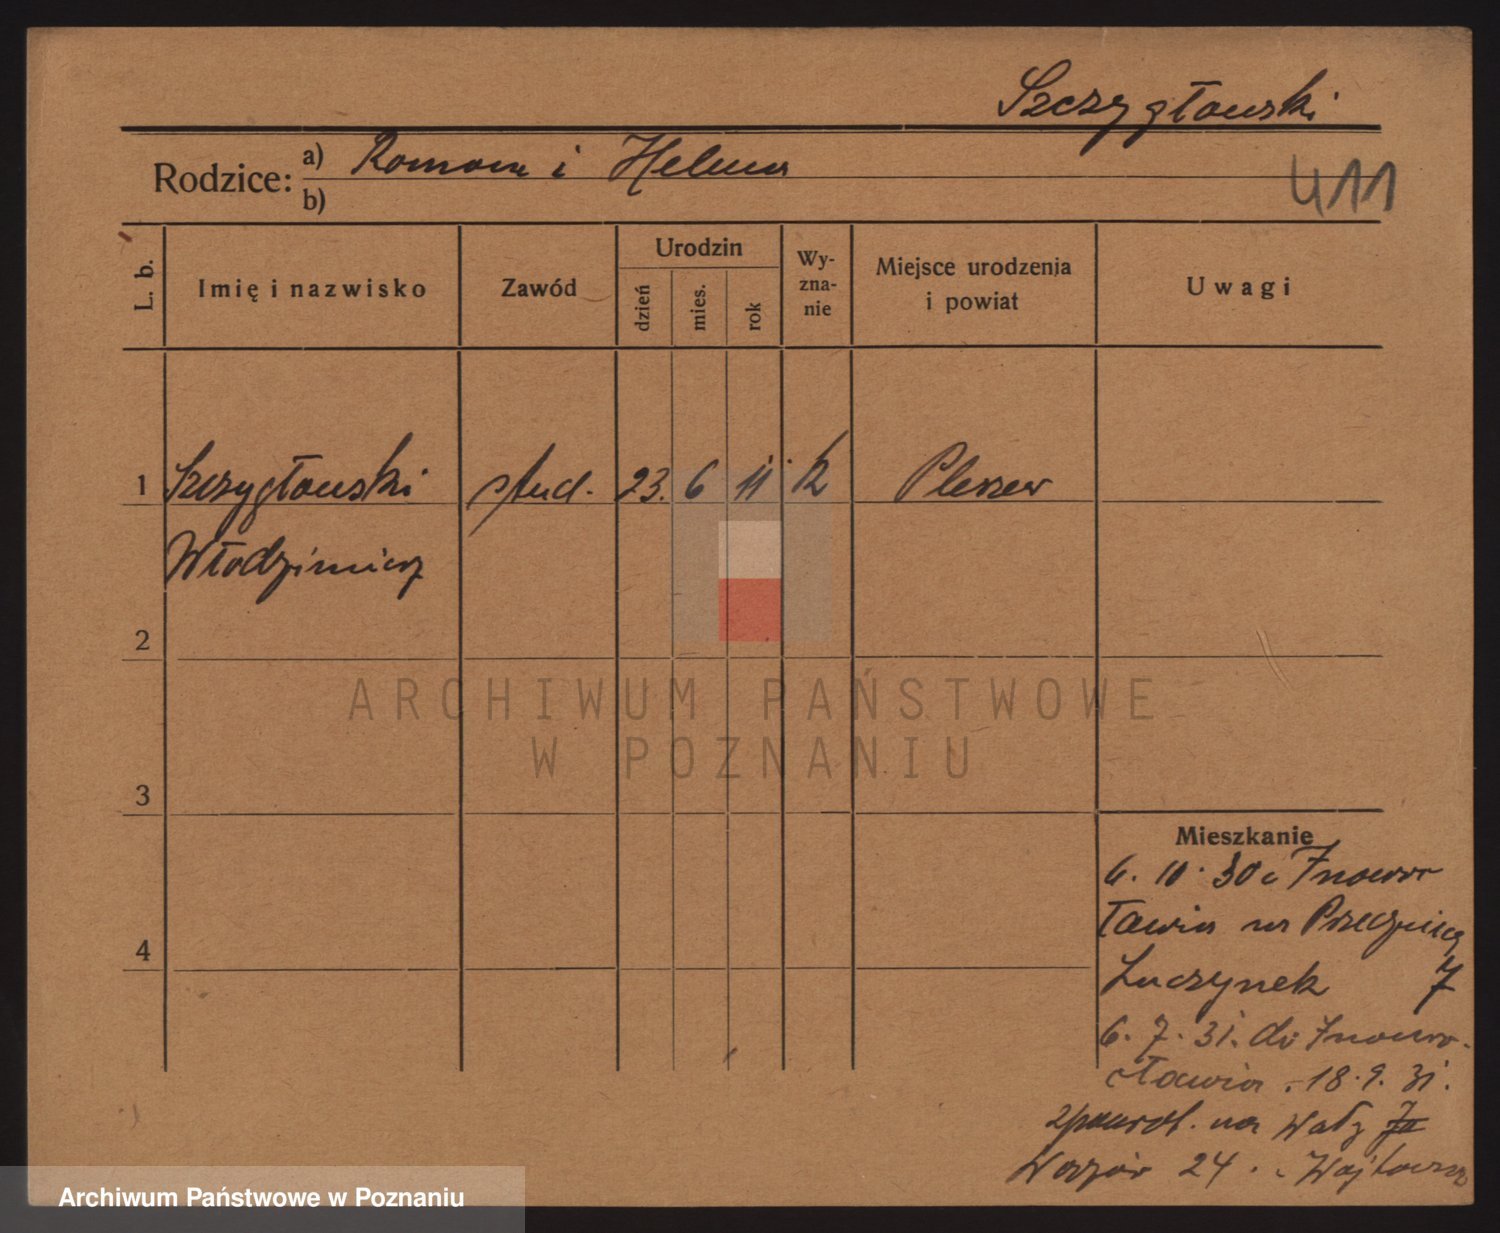 Szczygłowski
Rodzice: a) Roman i Helena
b)
411
L. b.
Imię i nazwisko
Zawód
Urodzin
dzień
mies.
rok
Wy-
zna-
nie
Miejsce urodzenia
i powiat
Uwagi
1 Szczygłowski stud. 23. 6 11. k Pleszew
Włodzimierz
2
3
4
Mieszkanie
6. 10. 30 z Inowro
cławia na Przecznicę
Luczynek 7
6. 7. 31. do Inowro-
cławia. 18. 9. 31.
zpowrot. na Wały
24. Wojtowicz
ARCHIWUM PAŃSTWOWE
W POZNANIU
Archiwum Państwowe w Poznaniu